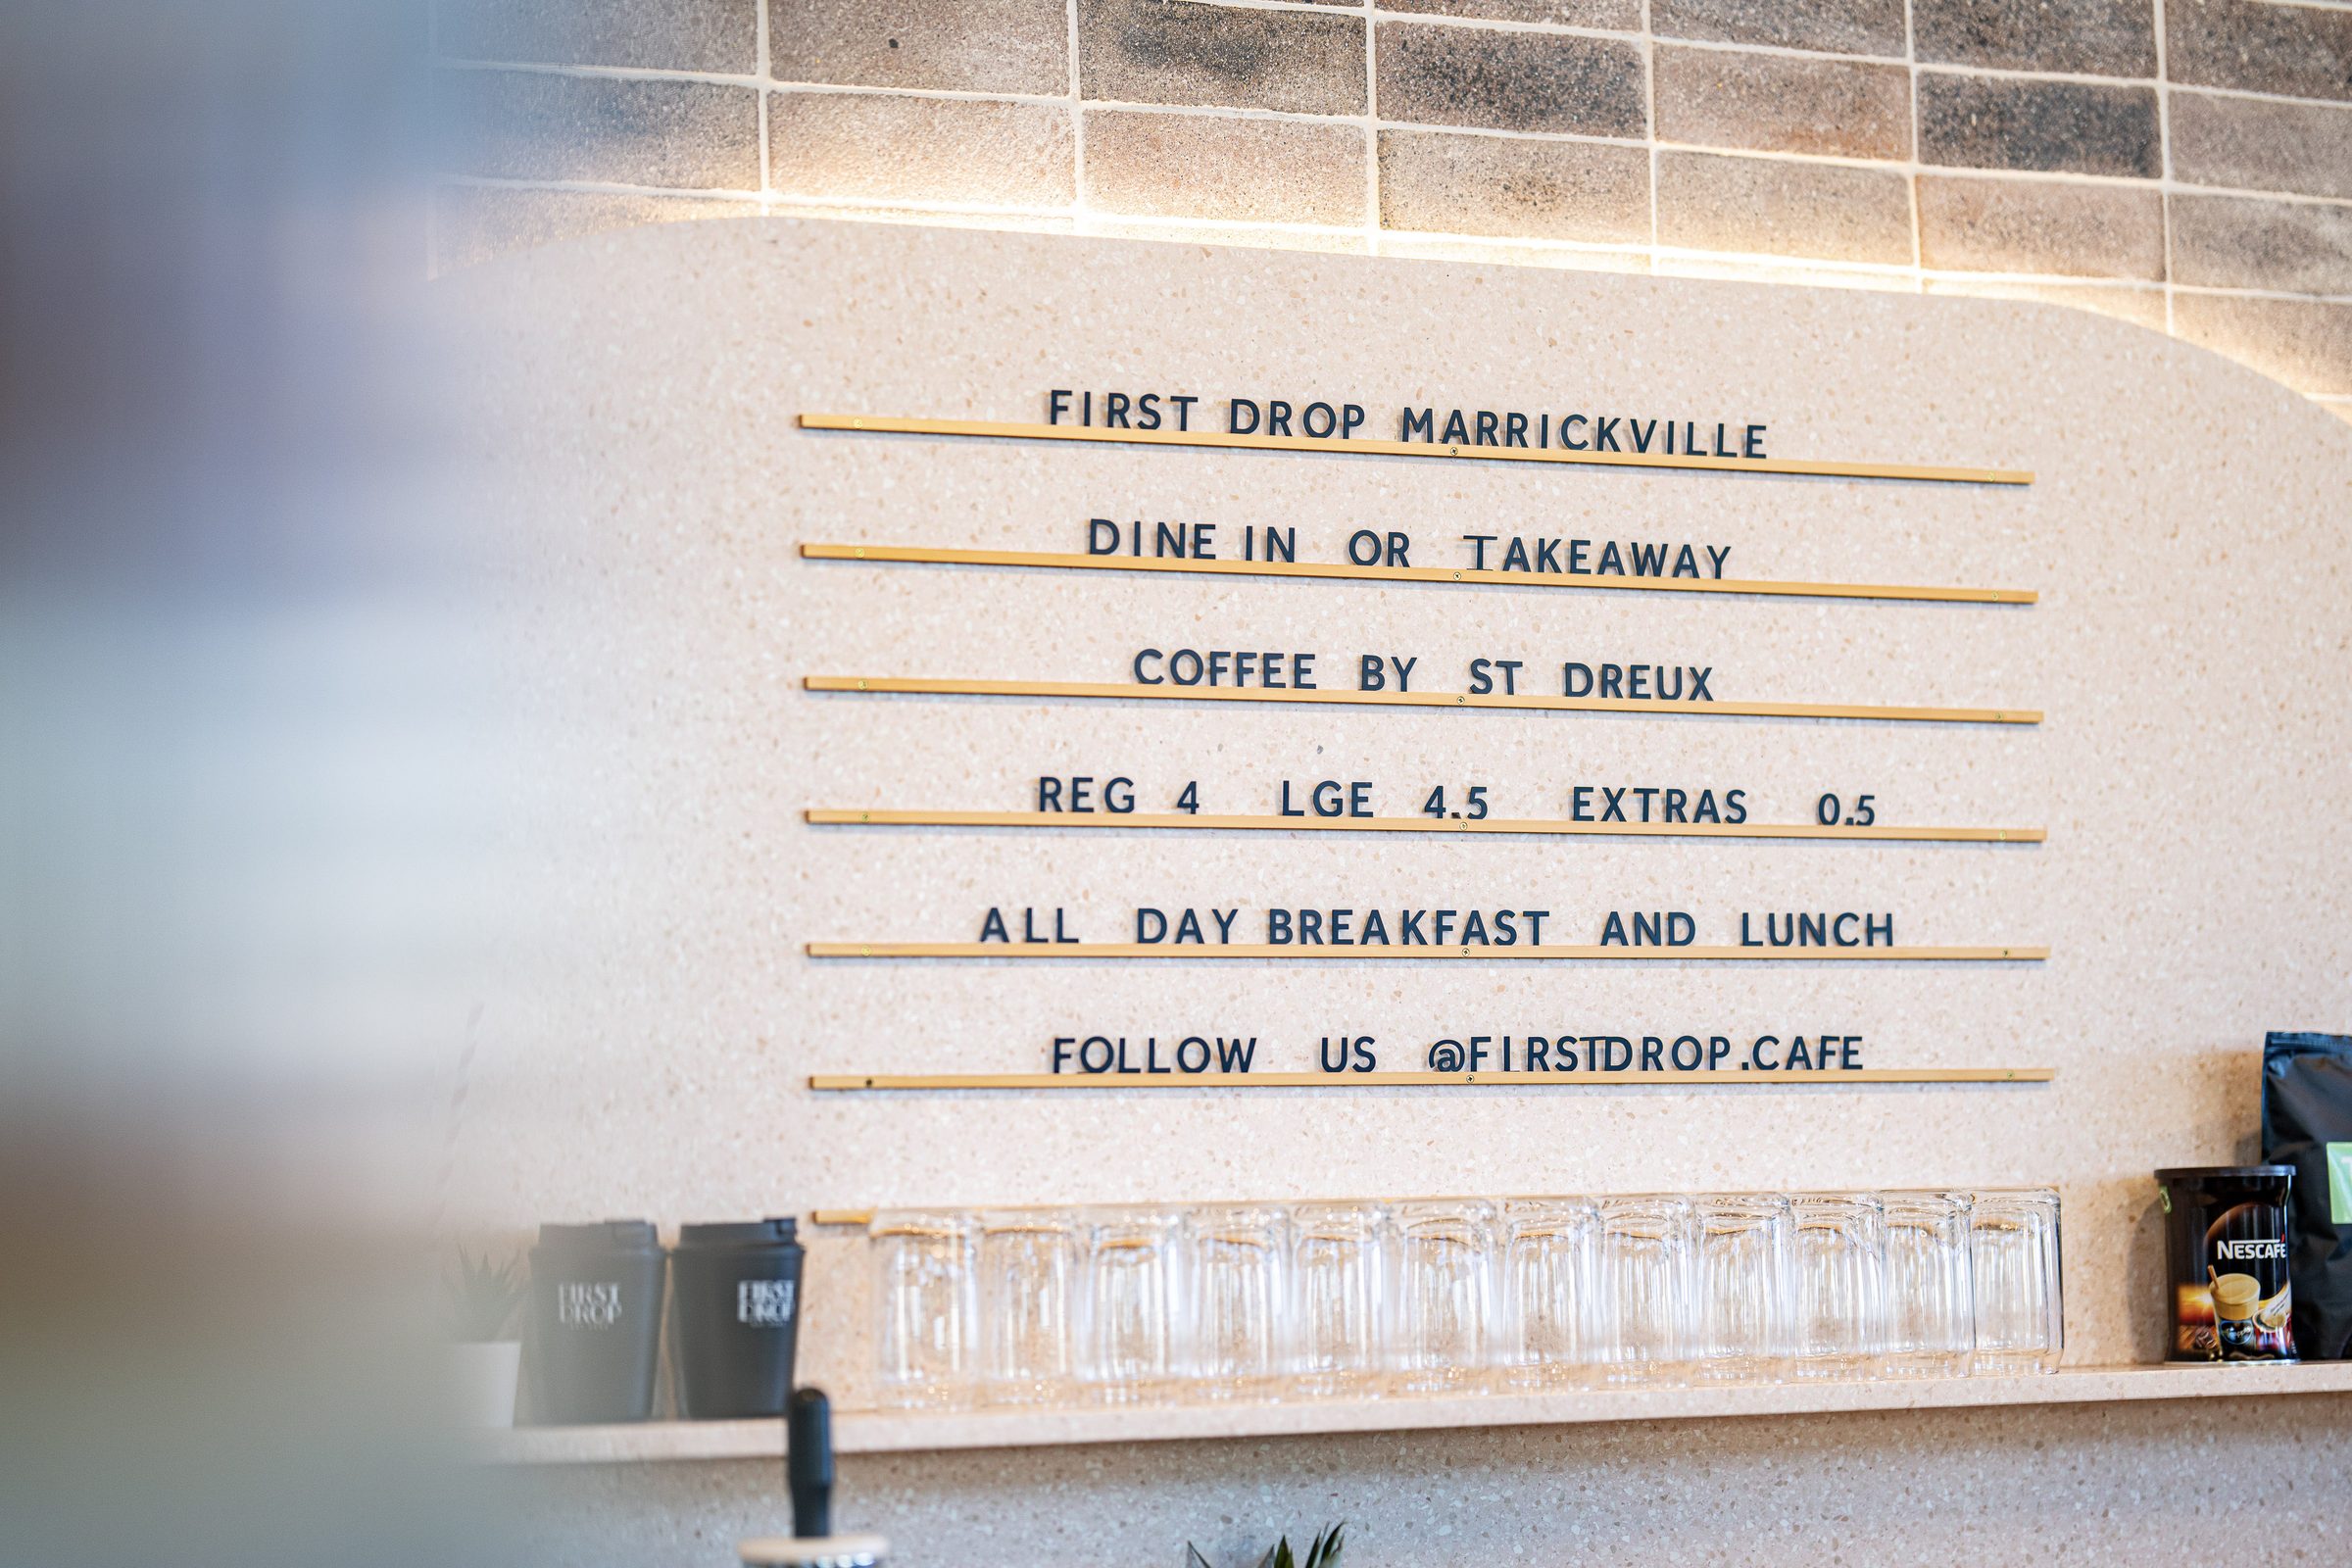 FIRST DROP MARRICKVILLE
DINE IN OR TAKEAWAY
COFFEE BY ST DREUX
REG 4 LGE 4.5 EXTRAS 0.5
ALL DAY BREAKFAST AND LUNCH
FOLLOW US @FIRSTDROP.CAFE
FIRST
DROP
FIRST
DROP
NESCAFÉ